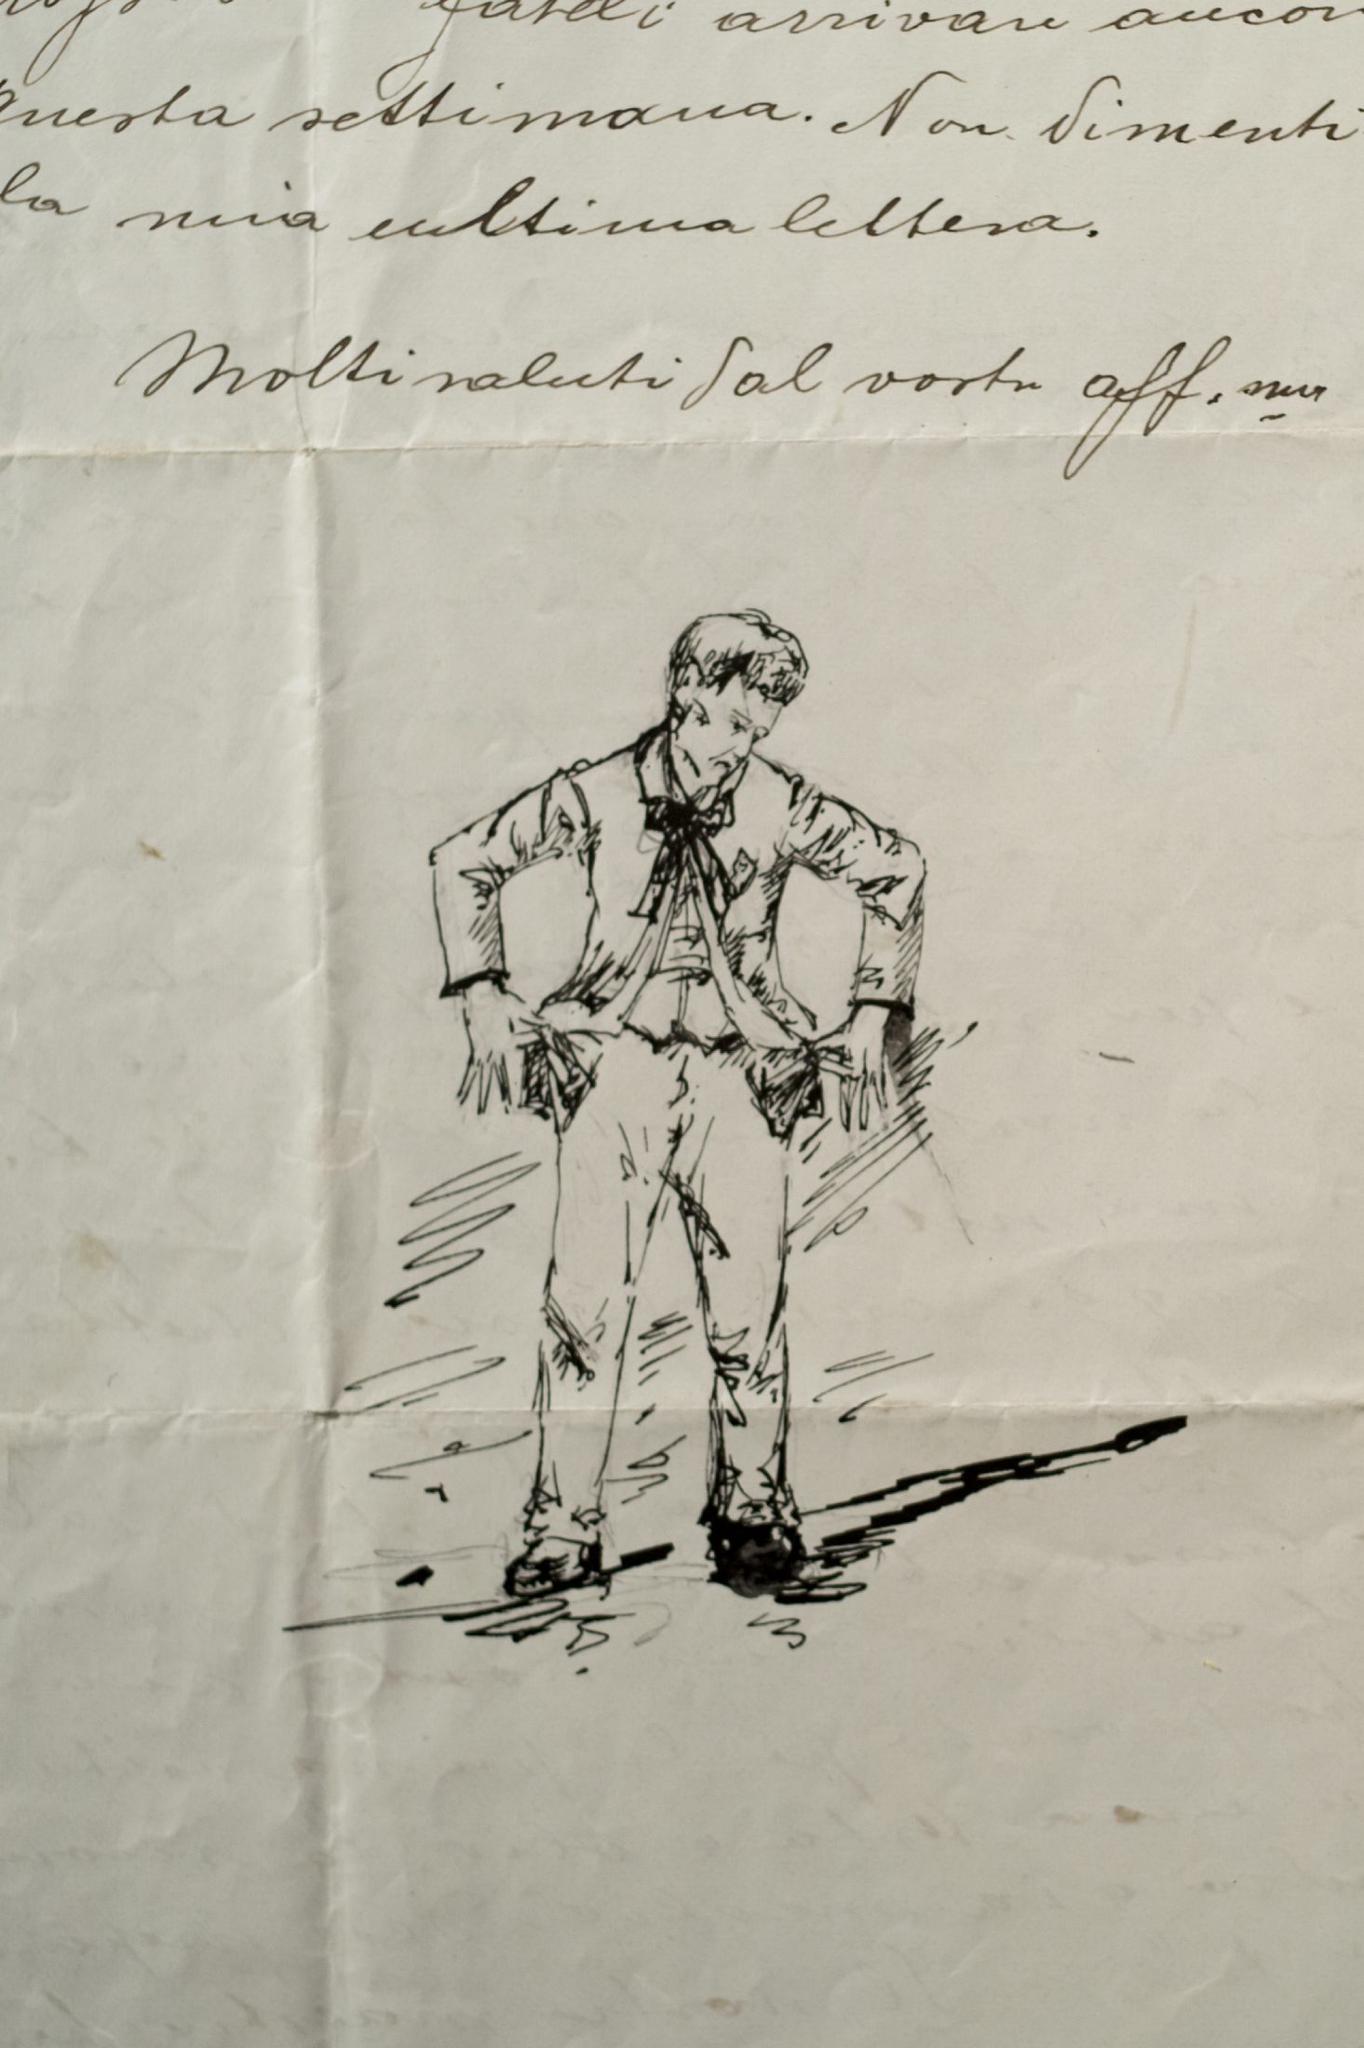 fateli arrivare ancor
questa settimana. Non dimenti
la mia ultima lettera.
Molti saluti dal vostro aff.mo